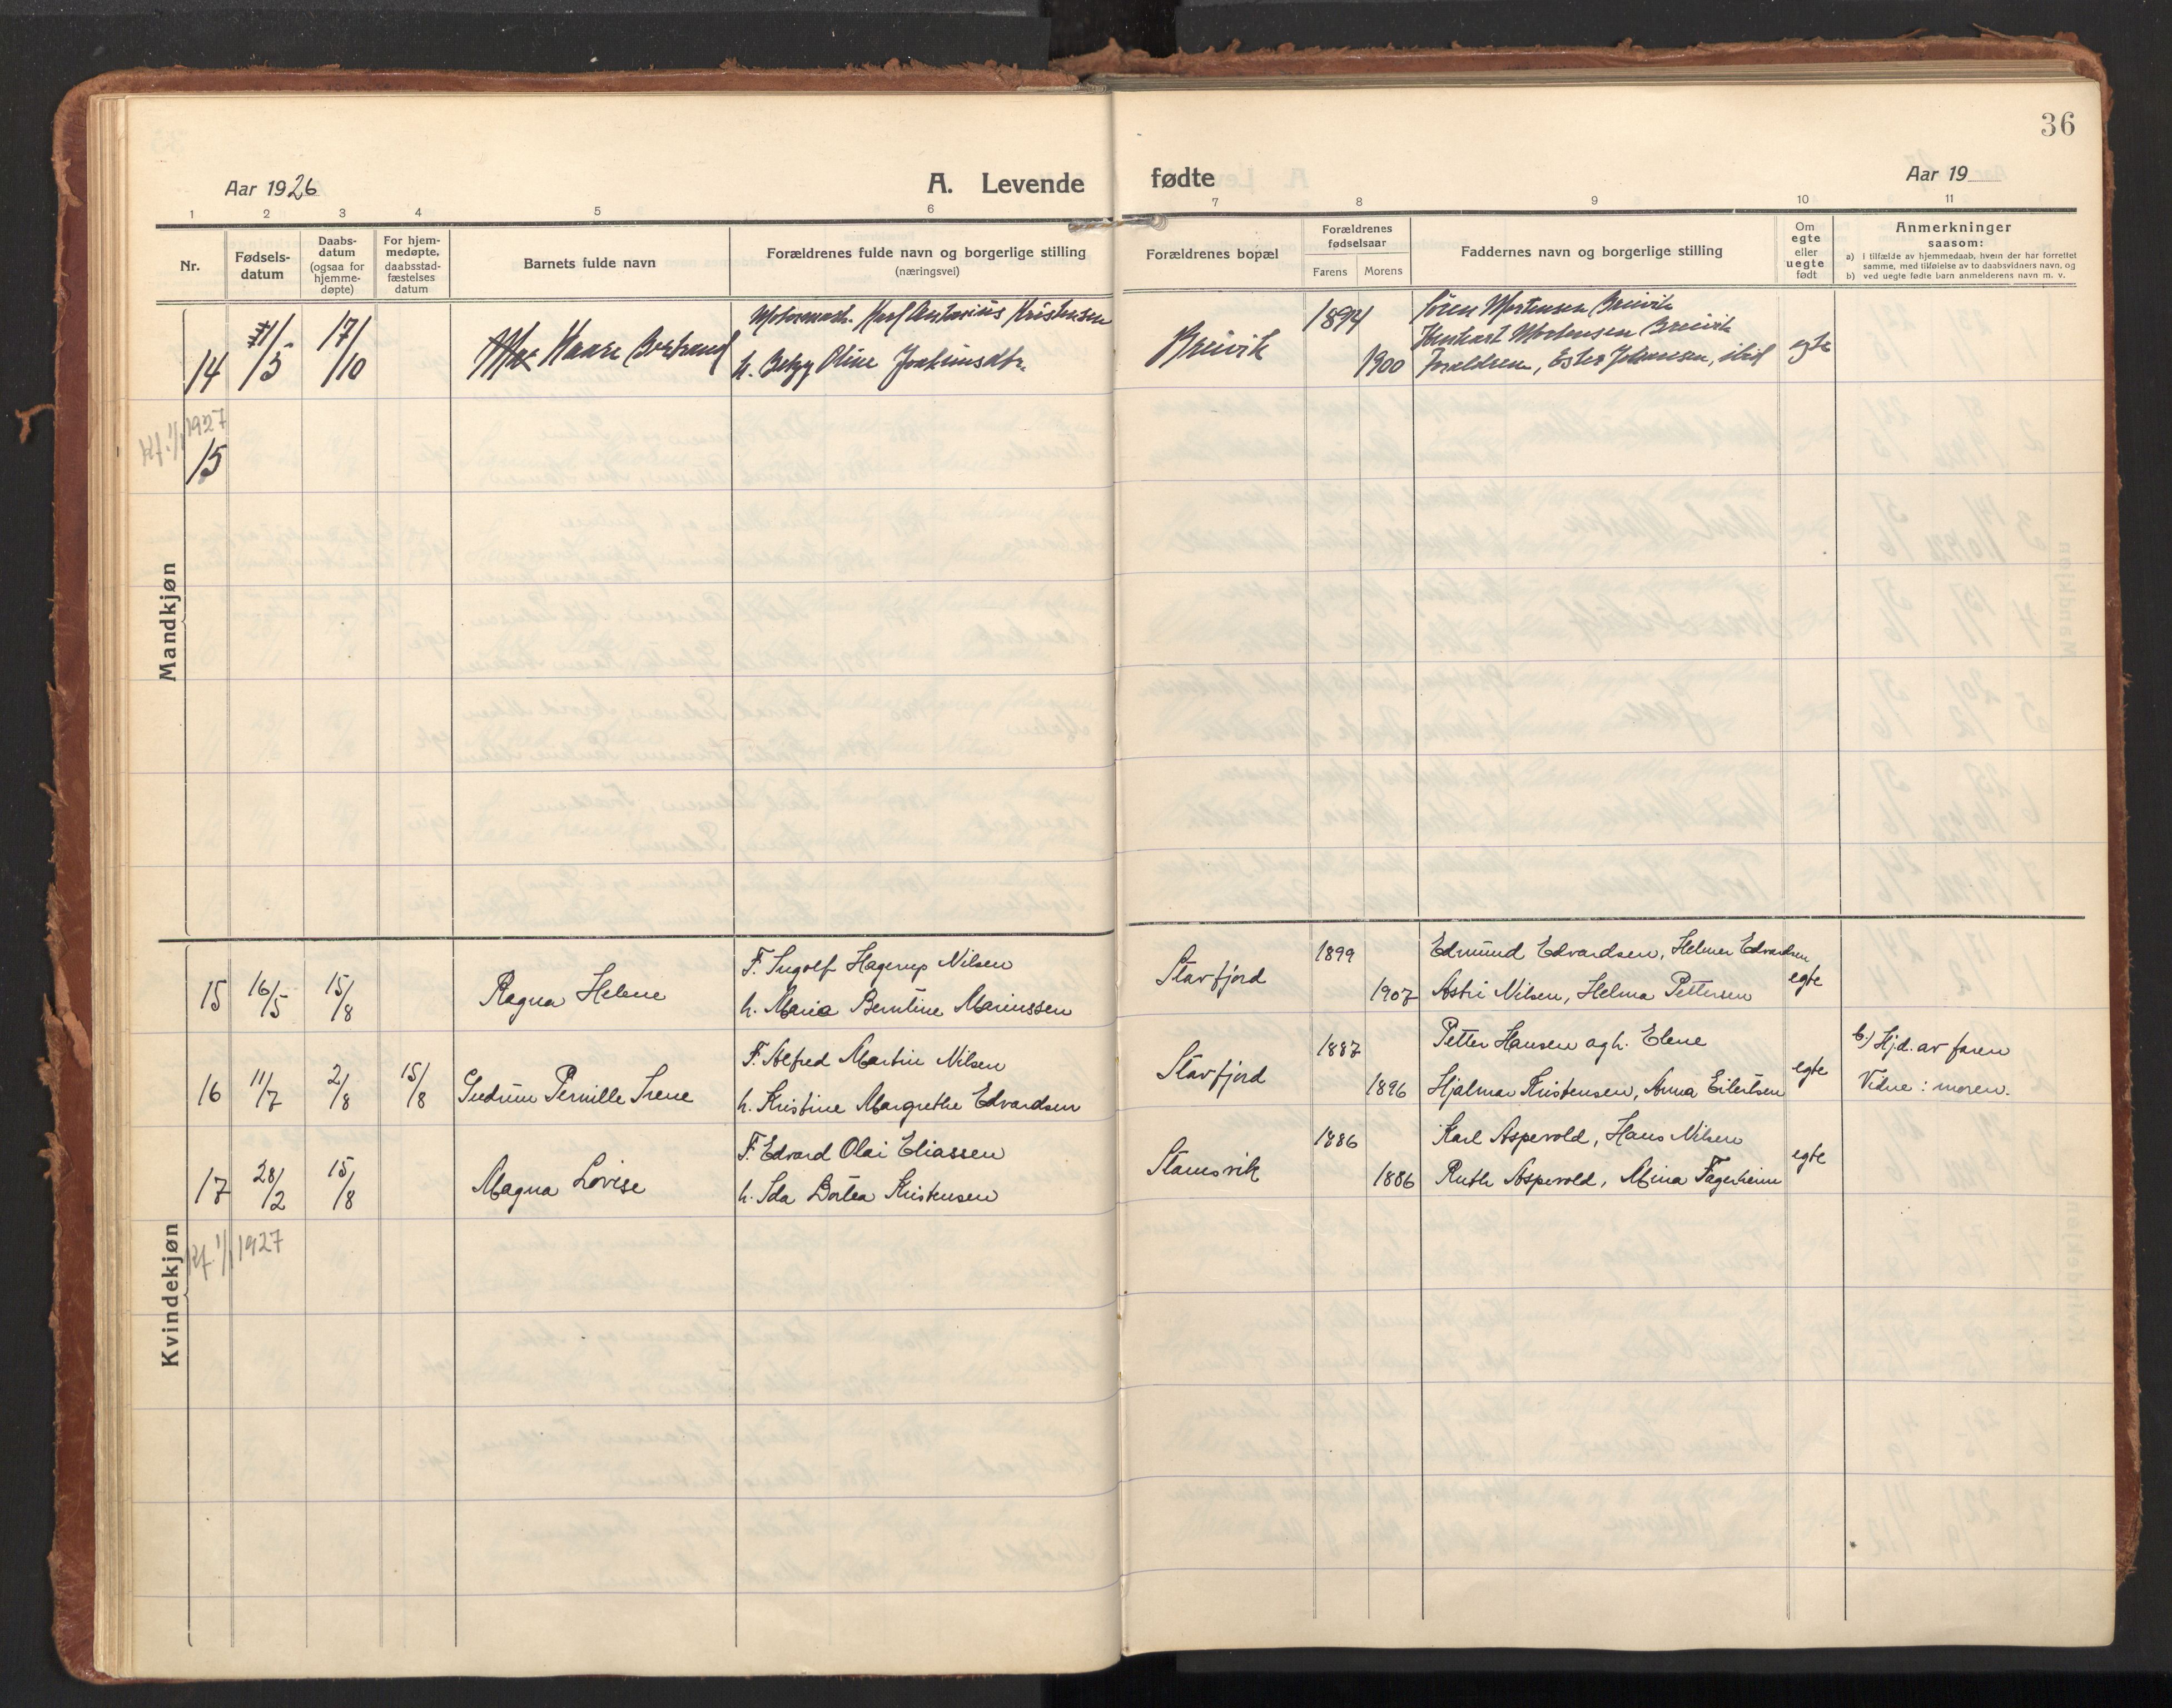 36
Aar 1926
A. Levende fødte
Aar 19
1 2 3 4 5 6 7 8 9 10 11
Nr.
Fødsels-
datum
Daabs-
datum
(ogsaa for
hjemme-
døpte)
For hjem-
medøpte,
daabsstad-
fæstelses
datum
Barnets fulde navn
Forældrenes fulde navn og borgerlige stilling
(næringsvei)
Forældrenes bopæl
Forældrenes
fødselsaar
Farens Morens
Faddernes navn og borgerlige stilling
Om
egte
eller
uegte
født
Anmerkninger
saasom:
a) i tilfælde av hjemmedaab, hvem der har forrettet
samme, med tilføielse av to daabsvidners navn, og
b) ved uegte fødte barn anmelderens navn m. v.
Mandkjøn
14
17/10
Kaare Bertrand
Karl Antonius Kristensen
h. Betzy Oline Joakimsdtr.
Breivik
1894
1900
Søren Mortensen Breivik
Mortensen Breivik
Forældrene, Ester Johansen, ibid
egte
1/1 1927
15
Kvindekjøn
15 16/5 15/8
Ragna Helene
F. Ingolf Hagerup Nilsen
h. Maria Berntine Marienssen
Stavfjord
1899
1907
Edmund Edvardsen, Helmer Edvardsen
Astri Nilsen, Helma Pettersen
egte
16 11/7 2/8 15/8
Gudrun Pernille Irene
F. Alfred Martin Nilsen
h. Kristine Margrethe Edvardsen
Stavfjord
1887
1896
Petter Hansen og h. Elene
Hjalmar Kristensen, Anna Eilertsen
egte
b.) Hj.d. av faren
Vidne: moren.
17 28/2 15/8
Magna Lovise
F. Edvard Olai Eliassen
h. Ida Dortea Kristensen
Stamsvik
1886
1886
Karl Aspevold, Hans Nilsen
Ruth Aspevold, Mina Fagerheim
egte
1/1 1927